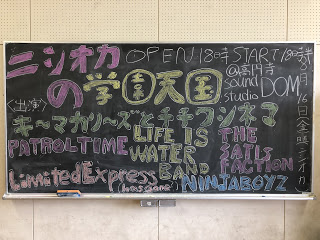 ニシオカの学園天国
OPEN 18時 START 18時半
@高円寺
sound studio DOM
6月16日(金曜
ニシオカ)
<出演>
キ〜マカリ〜ズと千チフシネマ
PATROLTIME
LIFE IS WATER BAND
THE SAILS FACTION
Limited Express (has gone?)
NINJA BOYZ